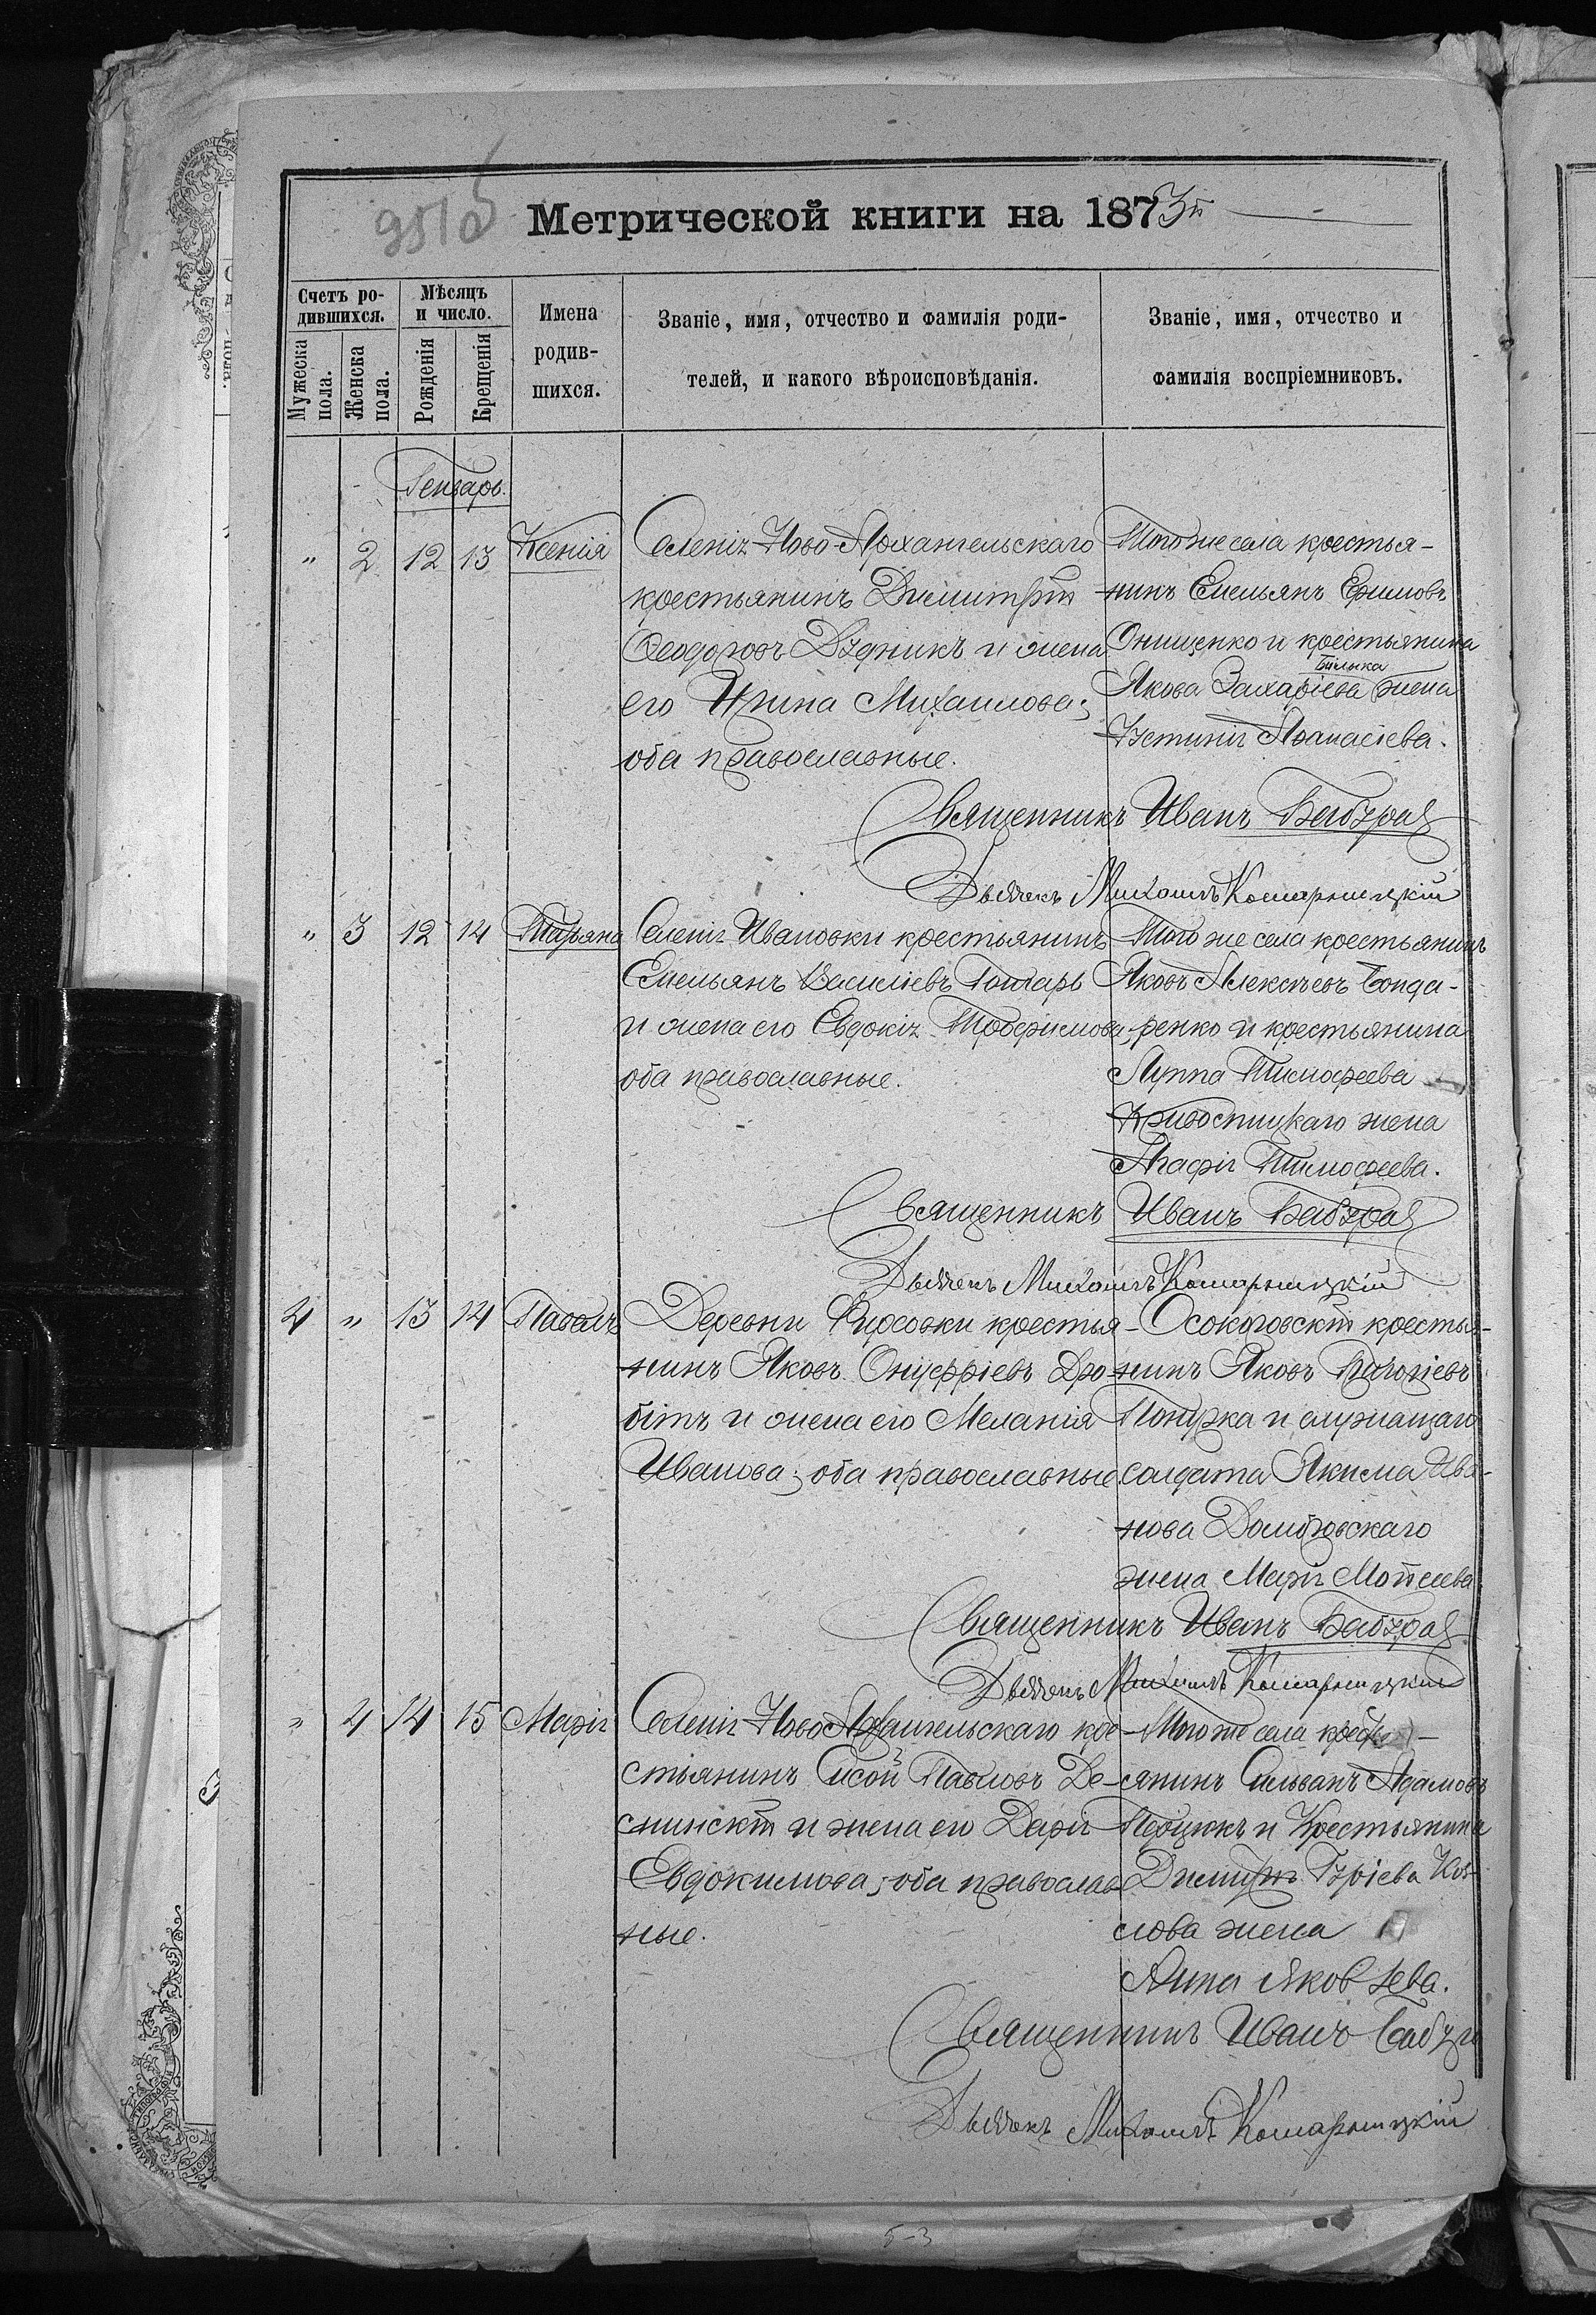 Метрической книги на 1873й
Счетъ родившихся.
Мужеска пола.
Женска пола.
Мѣсяцъ и число.
Рожденія
Крещенія
Имена родившихся.
Званіе, имя, отчество и фамилія родителей, и какого вѣроисповѣданія.
Званіе, имя, отчество и фамилія воспріемниковъ.
Генварь.
" 2 12 13 Ксенія
Селенія Ново-Архангельскаго
крестьянинъ Димитрій
Ѳеодоровъ Дудникъ и жена
его Ирина Михаилова;
оба православные.
Того же села крестья-
нинъ Емельянъ Ефимовъ
Онищенко и крестьянина
Якова Захаріева жена
Устинія Аѳанасіева.
Священникъ Иванъ Бабура
Дьячекъ Михаилъ Комарницкій
" 3 12 14 Татіяна
Селенія Ивановки крестьянинъ
Емельянъ Василіевъ Гончарь
и жена его Евдокія Трофимова,
оба православные.
Того же села крестьянинъ
Яковъ Алексѣевъ Бонда-
ренко и крестьянина
Луппа Тимофеева
жена
Агафія Тимофеева.
Священникъ Иванъ Бабура
Дьячекъ Михаилъ Комарницкій
4 " 13 14 Павелъ
Деревни Фирсовки крестья-
нинъ Яковъ Онуфріевъ Дро-
бітъ и жена его Меланія
Иванова; оба православные
крестья-
нинъ Яковъ Григоріевъ
и служащаго
солдата Якима Ива-
нова Домбровскаго
жена Марія Мойсеева
Священникъ Иванъ Бабура
Дьячекъ Михаилъ Комарницкій
" 4 14 15 Марія
Селенія Ново-Архангельскаго кре-
стьянинъ Сисой Павловъ Де-
снинскій и жена его Дарія
Евдокимова; оба православ-
ные.
Того же села кресть-
янинъ Сильванъ Адамовъ
и Крестьянина
Димитрія Гуріева Коз-
лова жена
Анна Яковлева.
Священникъ Иванъ Бабура
Дьячекъ Михаилъ Комарницкій
5-3